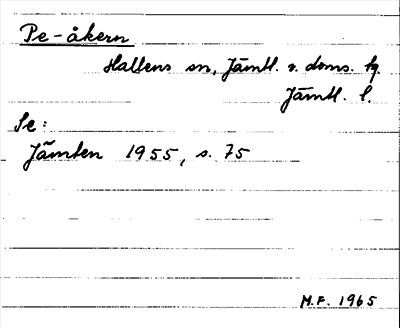 Pe-åkern
Hallens sn, Jämtl. v. doms. tg.
Jämtl. l.
Se:
Jämten 1955, s. 75
M.F. 1965